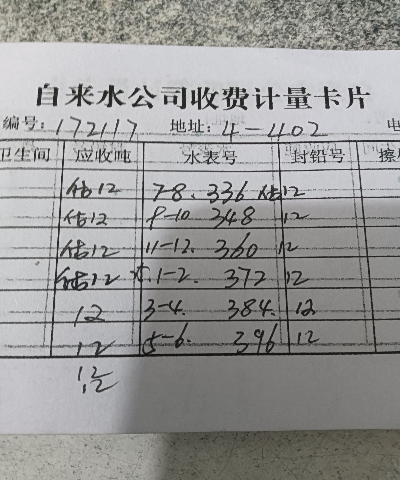 自来水公司收费计量卡片
编号: 172117 地址: 4-402 电
卫生间 应收吨 水表号 封铅号 擦
估12 7-8. 336 估12
估12 9-10 348 12
估12 11-12. 360 12
估12 1-2. 372 12
12 3-4. 384. 12
12 5-6. 396 12
12